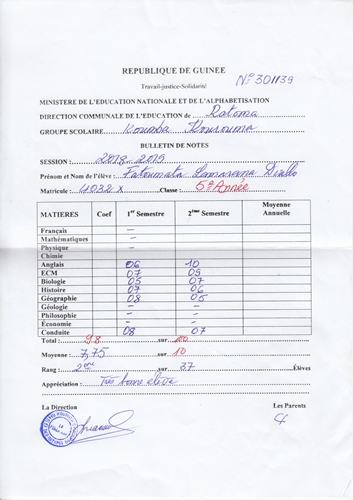 REPUBLIQUE DE GUINEE
N° 301139
Travail-justice-Solidarité
MINISTERE DE L'EDUCATION NATIONALE ET DE L'ALPHABETISATION
DIRECTION COMMUNALE DE L'EDUCATION de Ratoma
GROUPE SCOLAIRE Koumba Kourouma
BULLETIN DE NOTES
SESSION : 2018-2019
Prénom et Nom de l'élève : Fatoumata Lamarana Diallo
Matricule : 4032 X Classe : 5è Année
MATIERES Coef 1er Semestre 2ème Semestre Moyenne Annuelle
Français –
Mathématiques –
Physique –
Chimie
Anglais 06 10
ECM 07 09
Biologie 05 07
Histoire 07 06
Géographie 08 05
Géologie – –
Philosophie – –
Economie – –
Conduite 08 07
Total : 98 sur 100
Moyenne : 7,75 sur 10
Rang : 2ème sur 37 Élèves
Appréciation : Très bonne élève
La Direction Les Parents